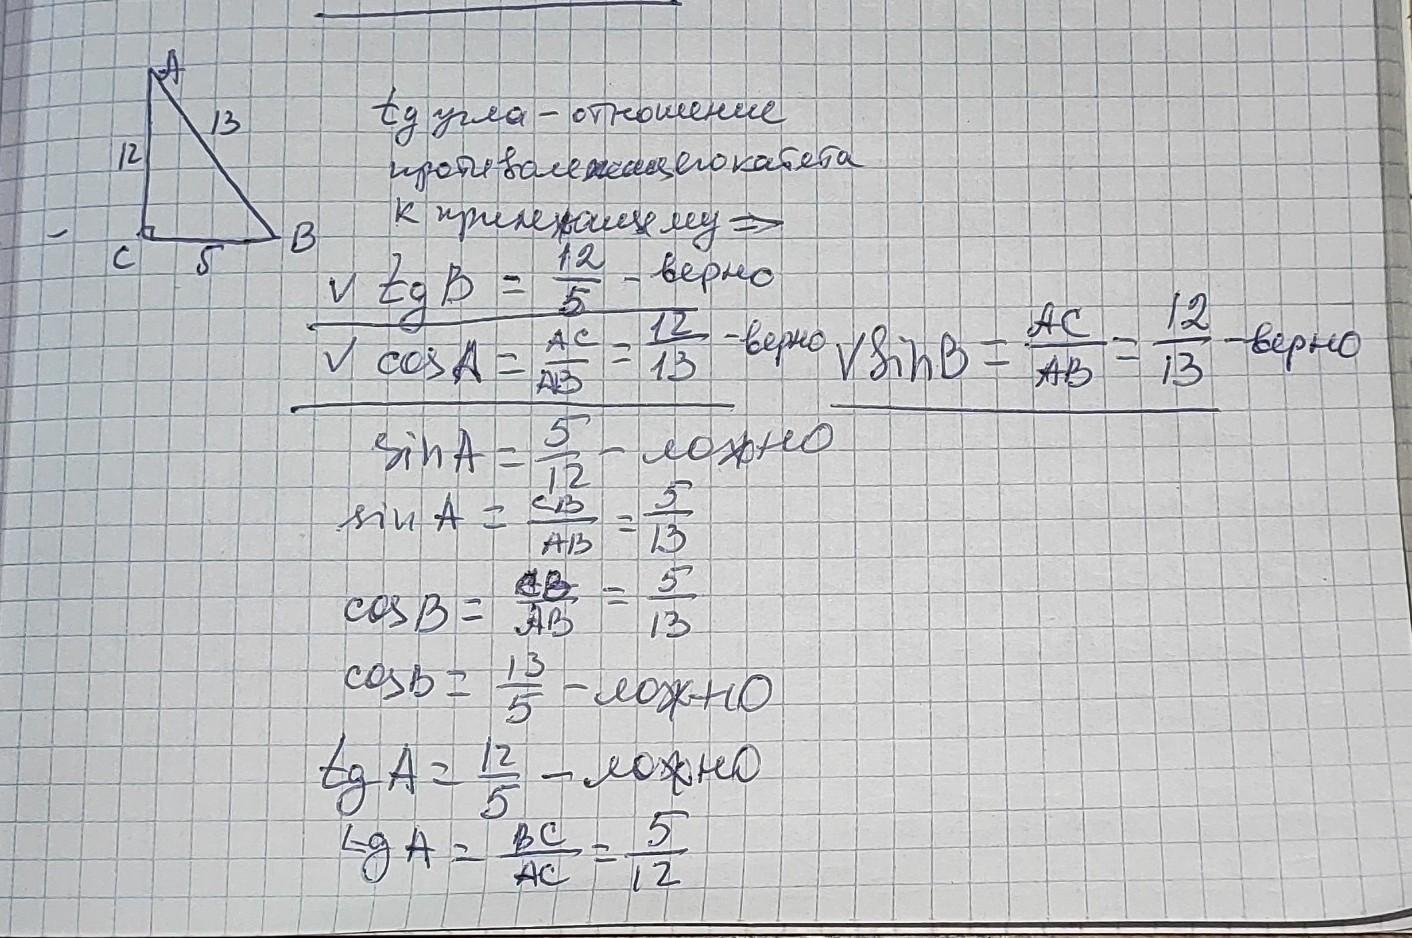 A
13
12
C
5
B
tg угла - отношение
противолежащего катета
к прилежащему =>
√ tg B = 12/5 - верно
√ cos A = AC/AB = 12/13 - верно
√ sin B = AC/AB = 12/13 - верно
sin A = 5/12 - ложно
sin A = CB/AB = 5/13
cos B = CB/AB = 5/13
cos B = 13/5 - ложно
tg A = 12/5 - ложно
tg A = BC/AC = 5/12